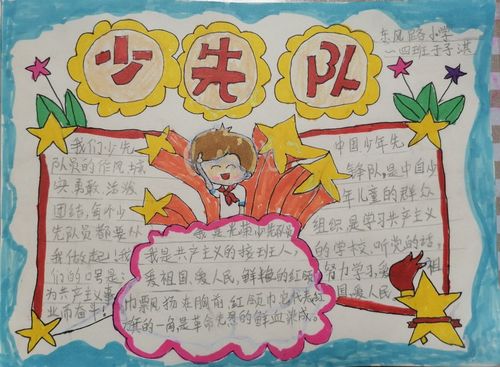 少先队
东风路小学
一四班于子淇
我们少先
队员的作风:诚
实 勇敢 活泼
团结,每个少
先队员都要从
我做起!我
们的口号是:
为共产主义事
业而奋斗!
我是光荣少先队员
我是共产主义的接班人,
爱祖国、爱人民,鲜艳的红领
巾飘扬在胸前,红领巾它代表红
旗的一角,是革命先烈的鲜血染成。
中国少年先
锋队,是中国少
年儿童的群众
组织,是学习共产主义
的学校。听党的话,
努力学习,爱祖
国、爱人民